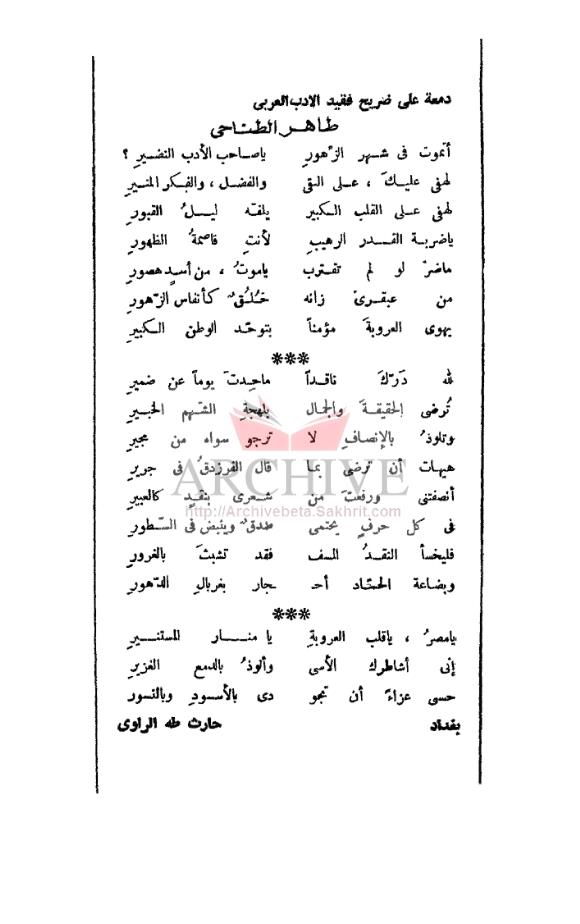 دمعة على ضريح فقيد الادب العربى
طاهر الطناحى
أتموت فى شهر الزهورِ ياصاحب الأدب النضيرِ ؟
لهفى عليكَ ، على التقى والفضل ، والفكر المنيرِ
لهفى على القلب الكبير يلفّه ليلُ القبورِ
ياضربة القدر الرهيبِ لأنتِ قاصمةُ الظهورِ
ماضرّ لو لم تقترب ياموتُ ، من أسدٍ هصورِ
من عبقرىّ زانه خُلُقٌ كأنفاس الزّهورِ
يهوى العروبةَ مؤمناً بتوحّد الوطن الكبيرِ
***
لله دَرّكَ ناقداً ماحِدتَ يوماً عن ضميرِ
تُرضى الحقيقةَ والجمال بلهجةِ الشهم الخبيرِ
وتلوذُ بالإنصافِ لا ترجو سواه من مجيرِ
هيهات أن ترضى بما قال الفرزدقُ فى جريرِ
أنصفتنى ورفعتَ من شعرى بنقدٍ كالعبيرِ
فى كل حرفٍ يحتمى صدقٌ وينبض فى السّطورِ
فليخسأ النقدُ المسف فقد تشبثَ بالغرورِ
وبضاعة الحسّاد أحـ ـجار بغربالِ الدّهورِ
***
يامصرُ ، ياقلب العروبةِ يا منار المستنيرِ
إنى أشاطرك الأسى وألوذُ بالدمع الغزيرِ
حسبى عزاءً أن تجو دى بالأسودِ وبالنسور
بغداد حارث طه الراوى
ARCHIVE
http://Archivebeta.Sakhrit.com